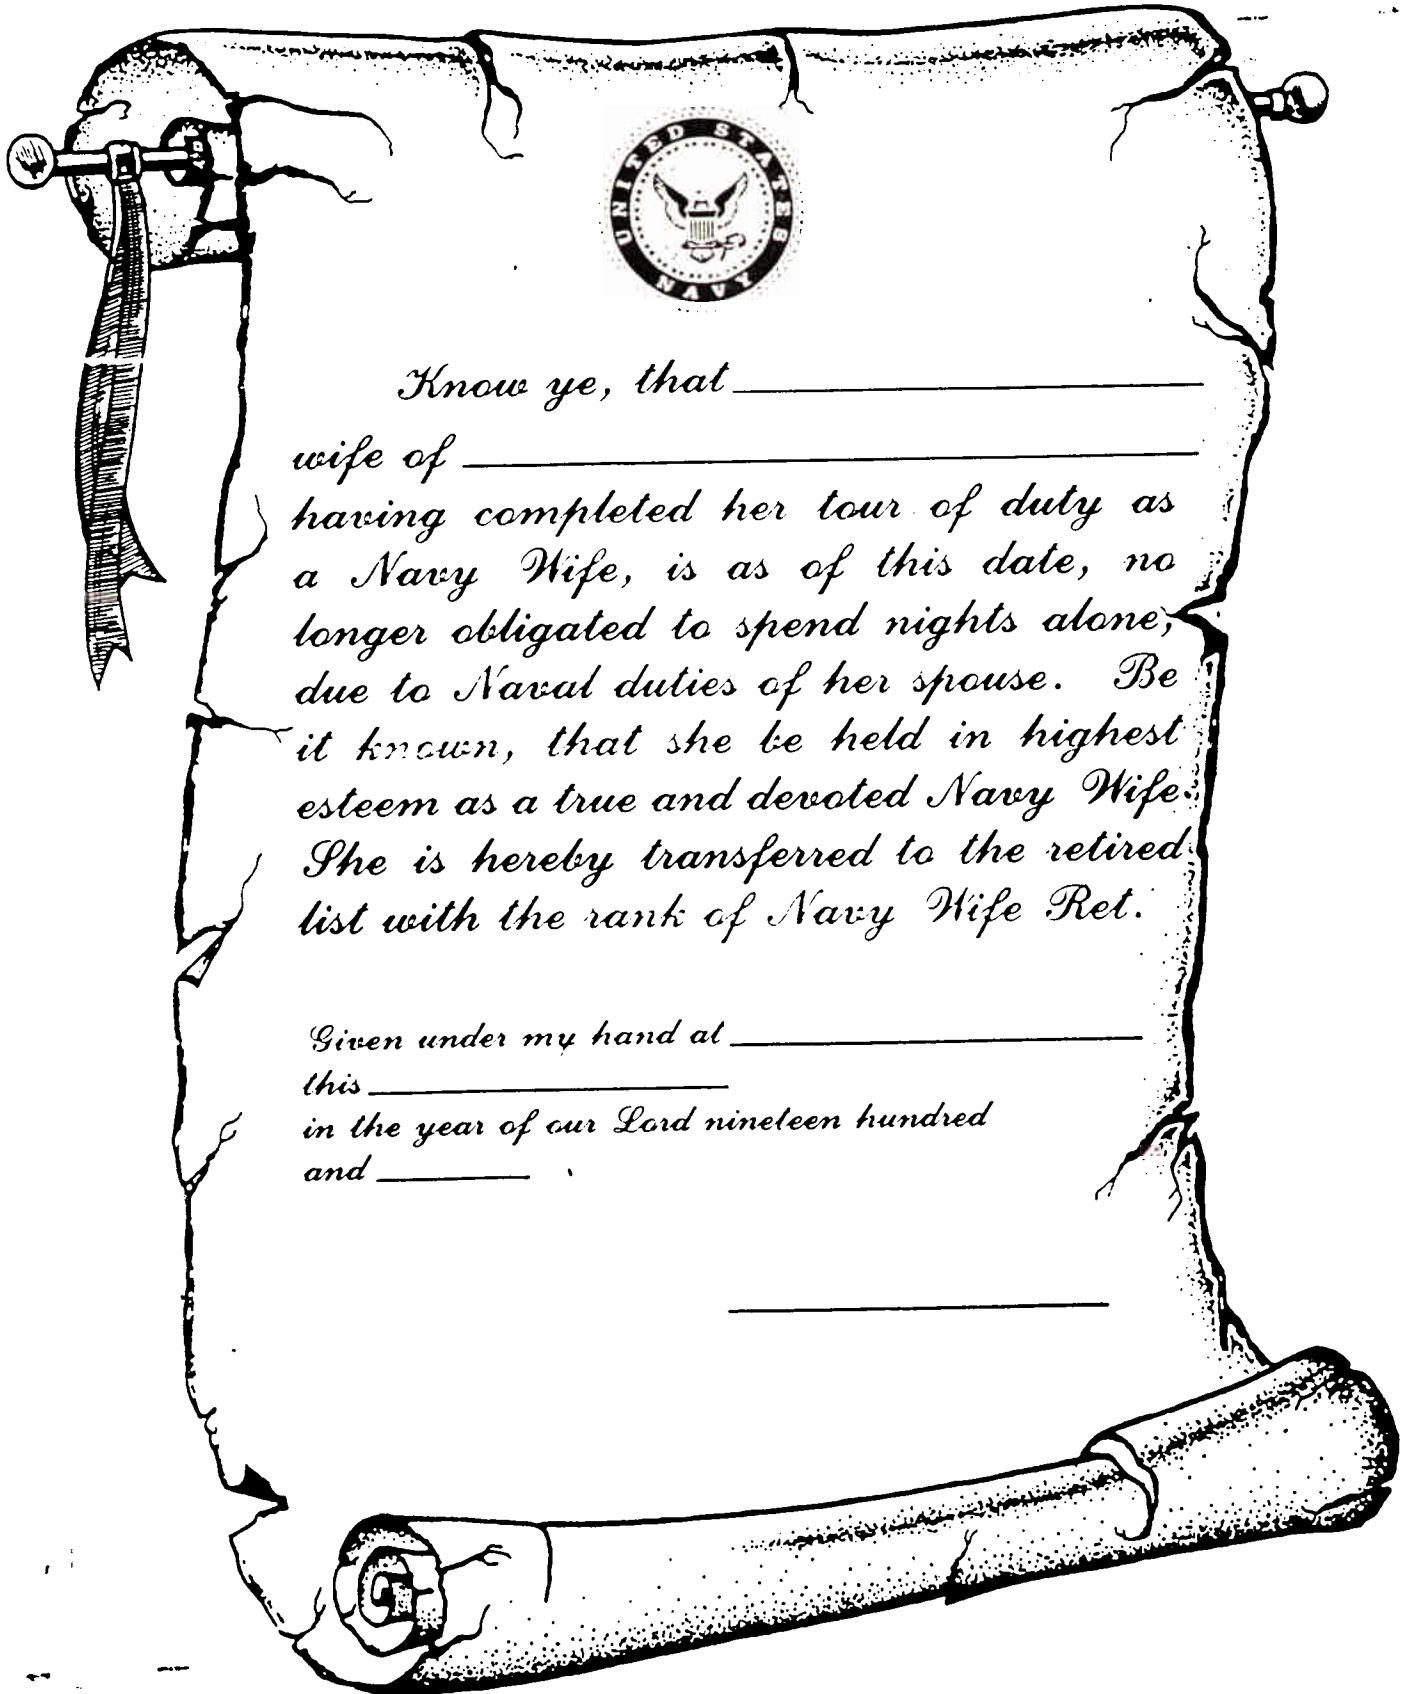 UNITED STATES
NAVY
Know ye, that
wife of
having completed her tour of duty as
a Navy Wife, is as of this date, no
longer obligated to spend nights alone,
due to Naval duties of her spouse. Be
it known, that she be held in highest
esteem as a true and devoted Navy Wife.
She is hereby transferred to the retired
list with the rank of Navy Wife Ret.
Given under my hand at
this
in the year of our Lord nineteen hundred
and